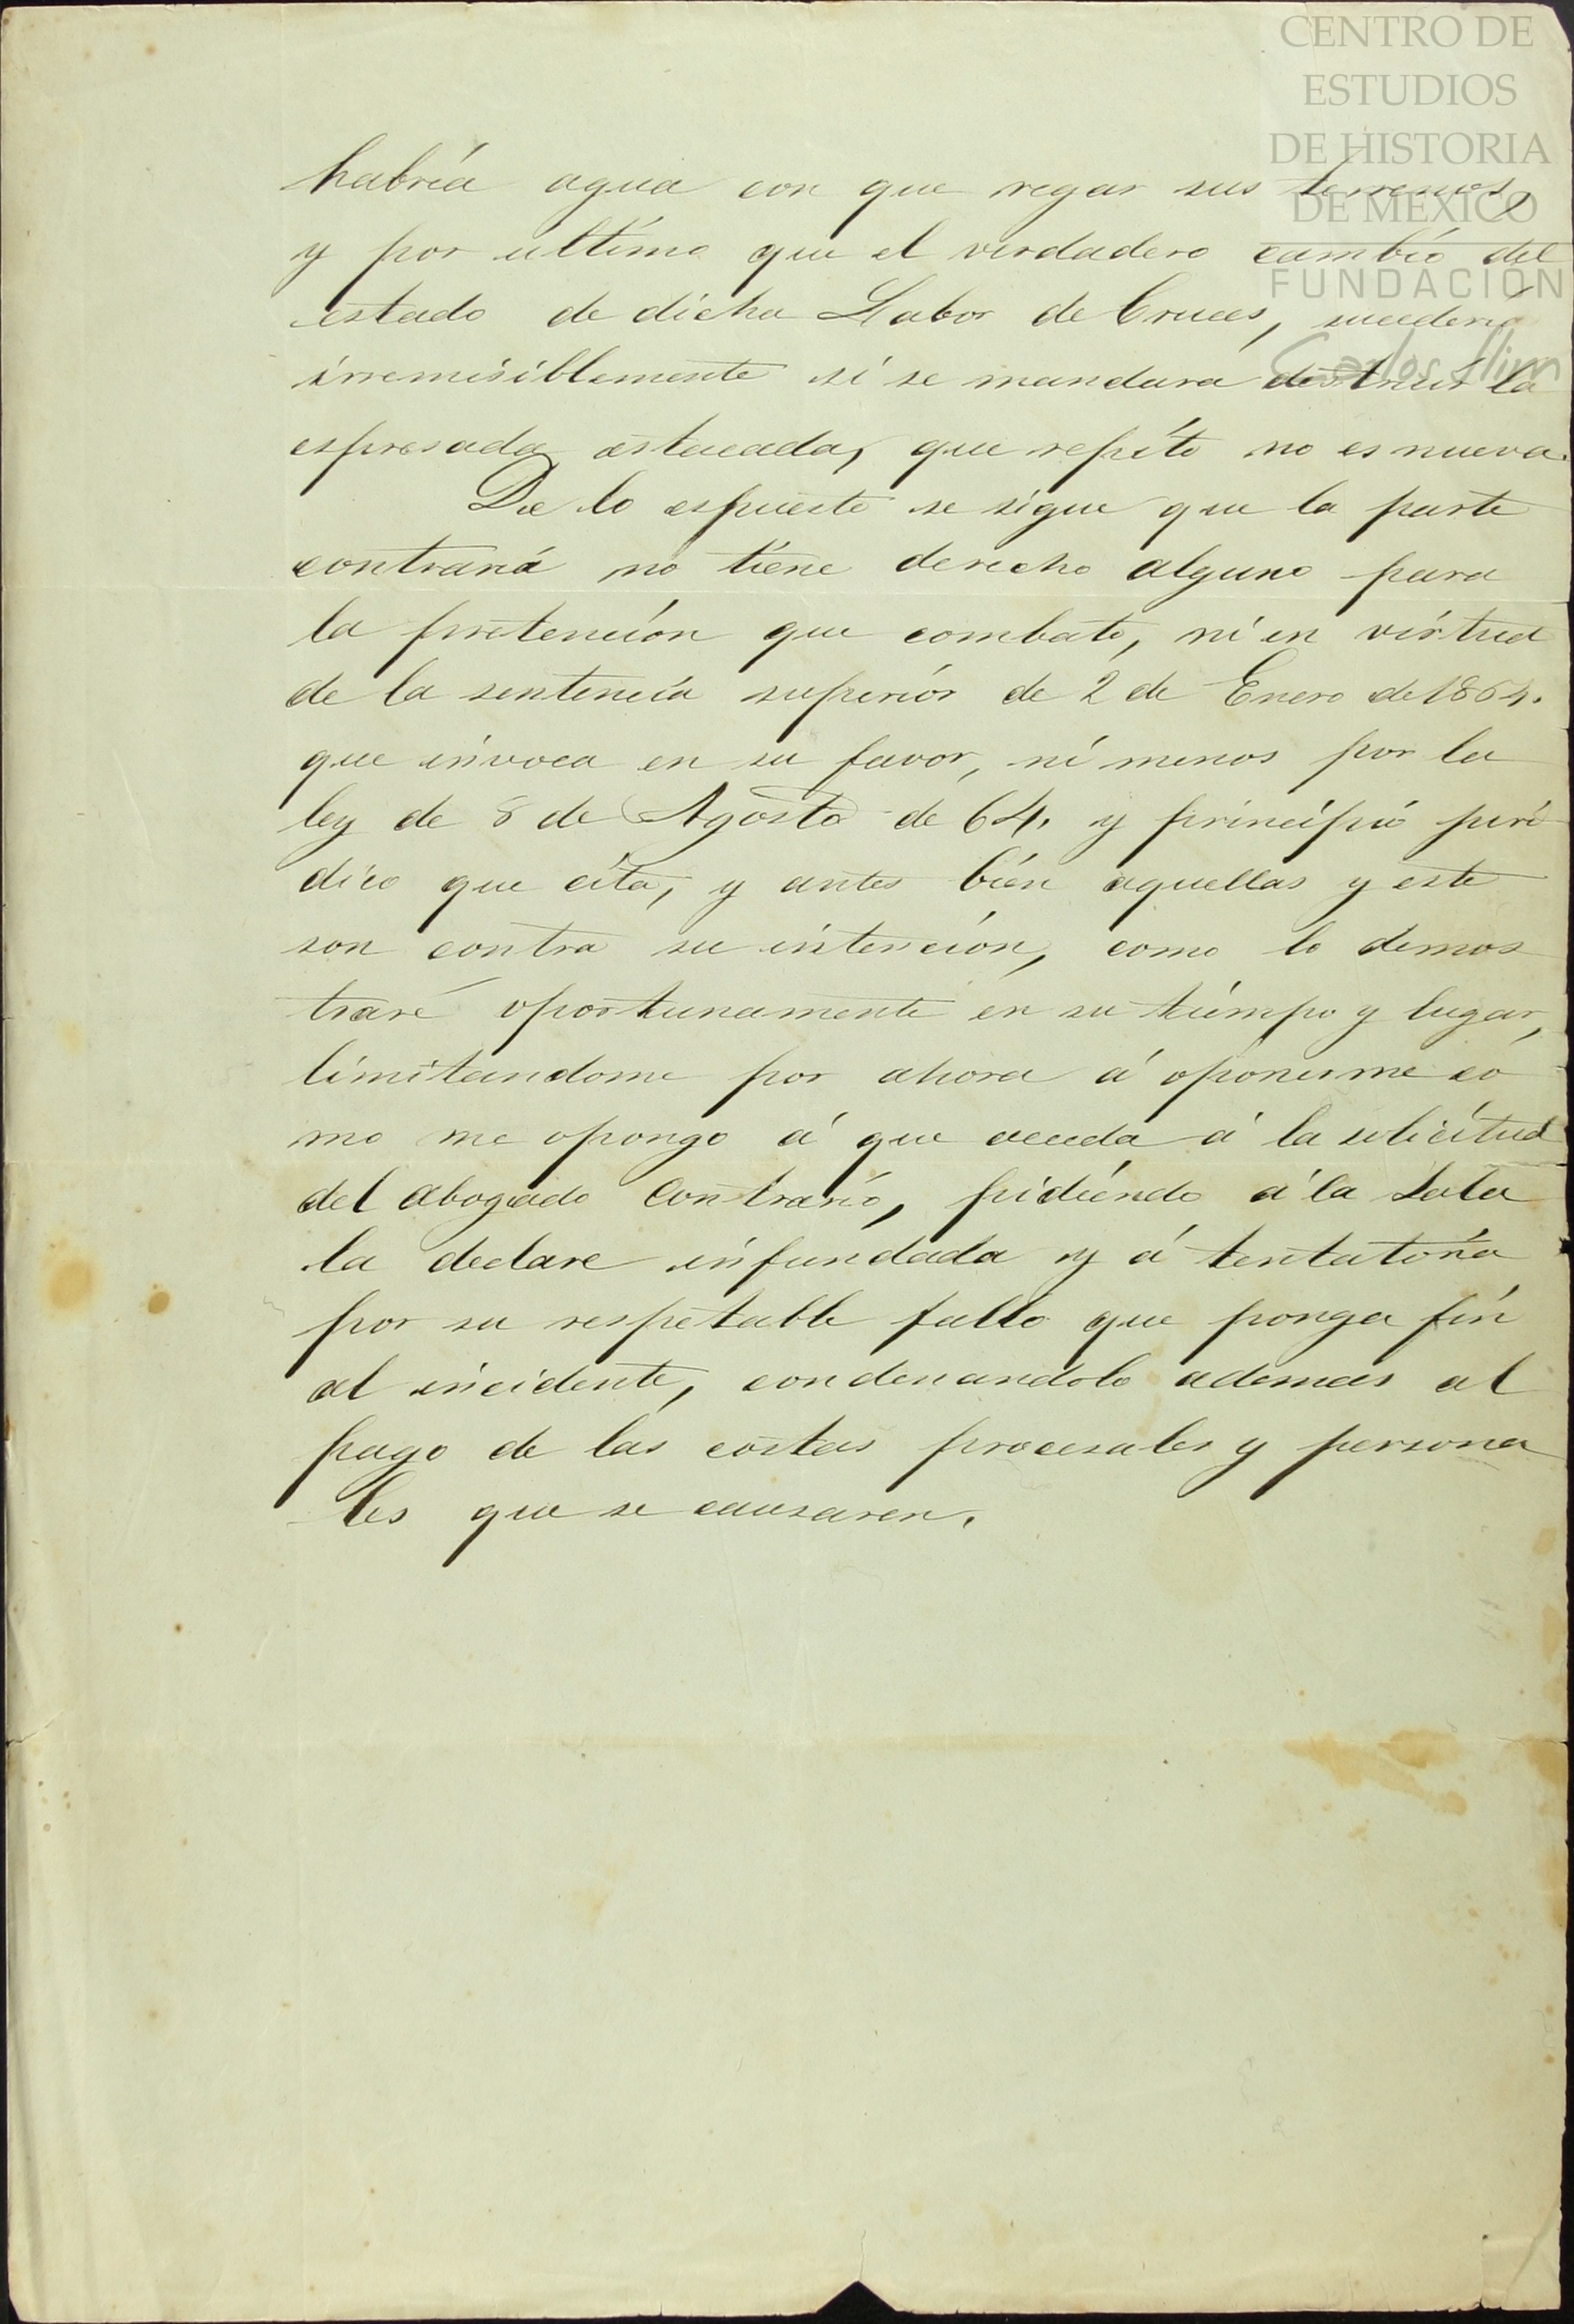 CENTRO DE
ESTUDIOS
DE HISTORIA
DE MÉXICO
FUNDACIÓN
Carlos Slim
habría agua con que regar sus terrenos,
y por ultimo que el verdadero cambio del
estado de dicha Labor de Cruces, sucederia
irremisiblemente si se mandara destruir la
espresada estacada, que repito no es nueva.
De lo espuesto se sigue que la parte
contraria no tiene derecho alguno para
la pretención que combato, ni en virtud
de la sentencia superior de 2 de Enero de 1864.
que invoca en su favor, ni menos por la
ley de 8 de Agosto de 64. y principio juri
dico que cita, y antes bien aquellas y este
son contra su intención, como lo demos
traré oportunamente en su tiempo y lugar,
limitandome por ahora á oponerme co
mo me opongo á que acceda á la solicitud
del abogado contrario, pidiendo á la Sala
la declare infundada y á tentatoria
por su respetable fallo que ponga fin
al incidente, condenandolo ademas al
pago de las costas procesales y persona
les que se causaren.